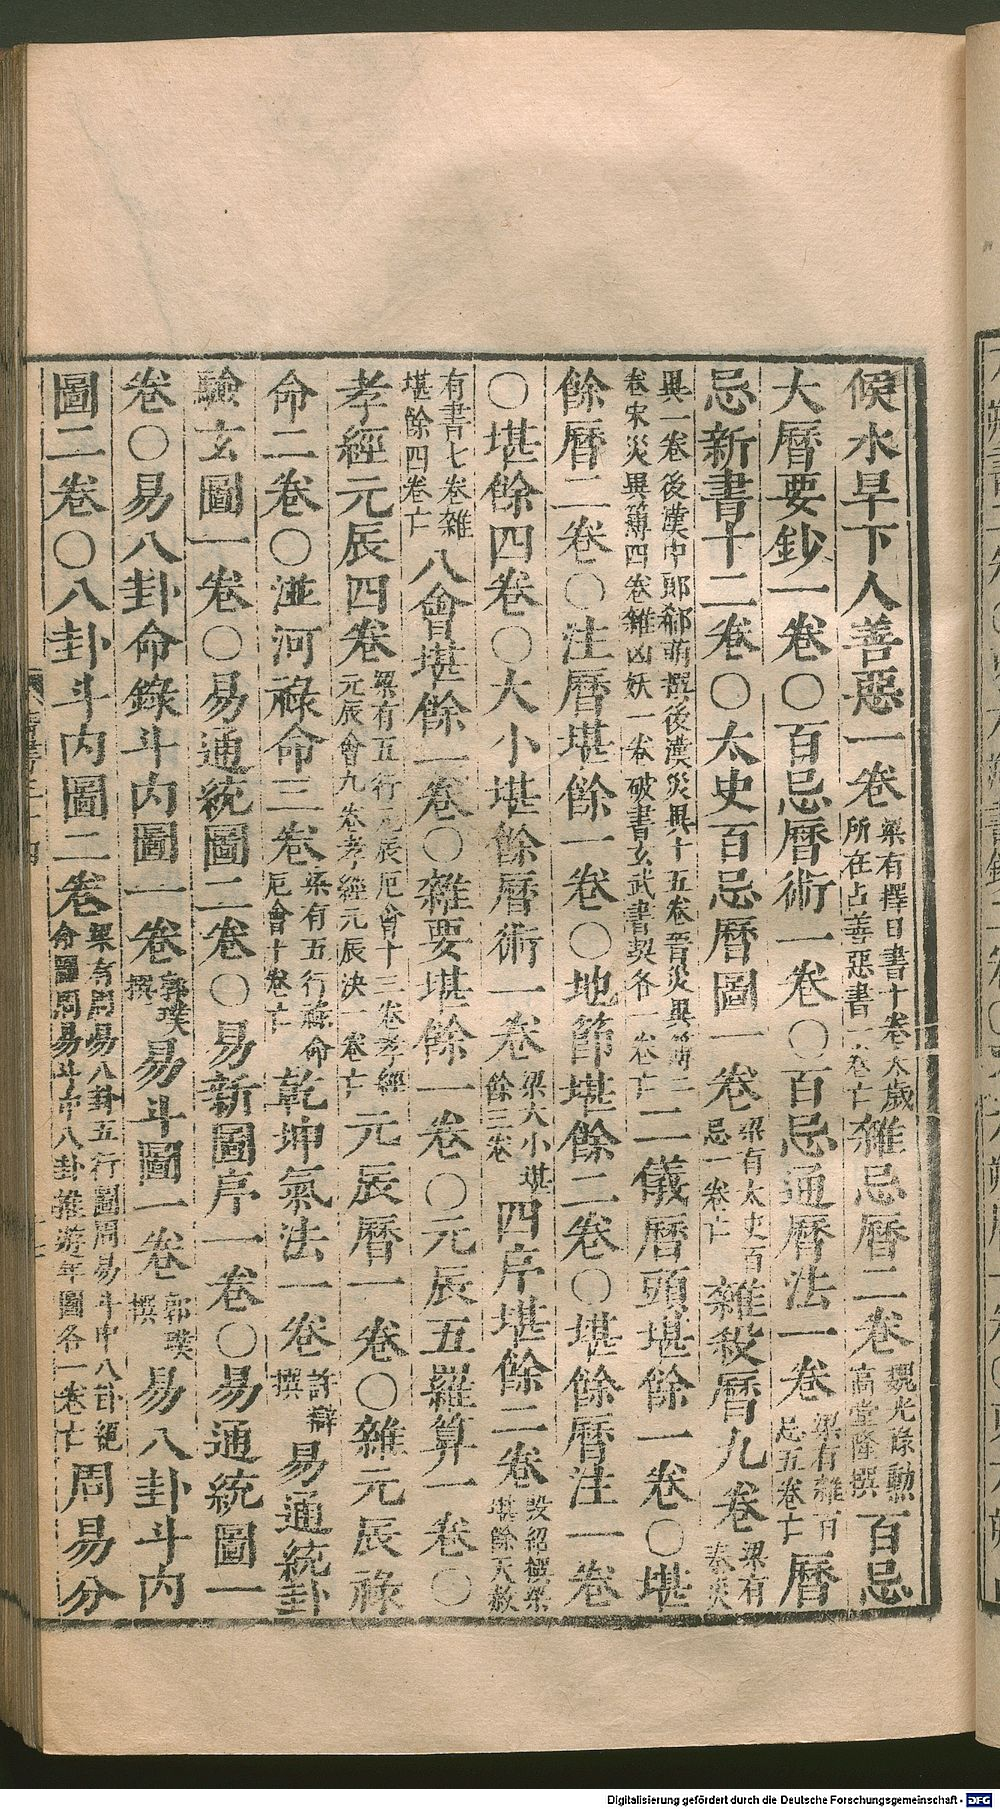 候水旱下人善惡一卷梁有擇日書十卷太歲所在占善惡書一卷亡雜忌曆二卷魏光祿勳高堂隆撰百忌
大曆要鈔一卷〇百忌曆術一卷〇百忌通曆法一卷梁有雜百忌五卷亡曆
忌新書十二卷〇太史百忌曆圖一卷梁有太史百忌一卷亡雜殺曆九卷梁有秦災
異一卷後漢中郎郗萌撰後漢災異十五卷晉災異簿二卷宋災異簿四卷雜凶妖一卷破書玄武書契各一卷亡二儀曆頭堪餘一卷〇堪
餘曆二卷〇注曆堪餘一卷〇地節堪餘二卷〇堪餘曆注一卷
〇堪餘四卷〇大小堪餘曆術一卷梁大小堪餘三卷四序堪餘二卷殷紹撰梁堪餘天赦
有書七卷雜堪餘四卷亡八會堪餘一卷〇雜要堪餘一卷〇元辰五羅算一卷〇
孝經元辰四卷梁有五行元辰厄會十三卷孝經元辰會九卷孝經元辰決一卷亡元辰曆一卷〇雜元辰祿
命二卷〇湴河祿命三卷梁有五行祿命厄會十卷亡乾坤氣法一卷許辯撰易通統卦
驗玄圖一卷〇易通統圖二卷〇易新圖序一卷〇易通統圖一
卷〇易八卦命錄斗內圖一卷郭璞撰易斗圖一卷郭璞撰易八卦斗內
圖二卷〇八卦斗內圖二卷梁有周易八卦五行圖周易斗中八卦絕命圖周易斗中八卦推遊年圖各一卷亡周易分
Digitalisierung gefördert durch die Deutsche Forschungsgemeinschaft - DFG